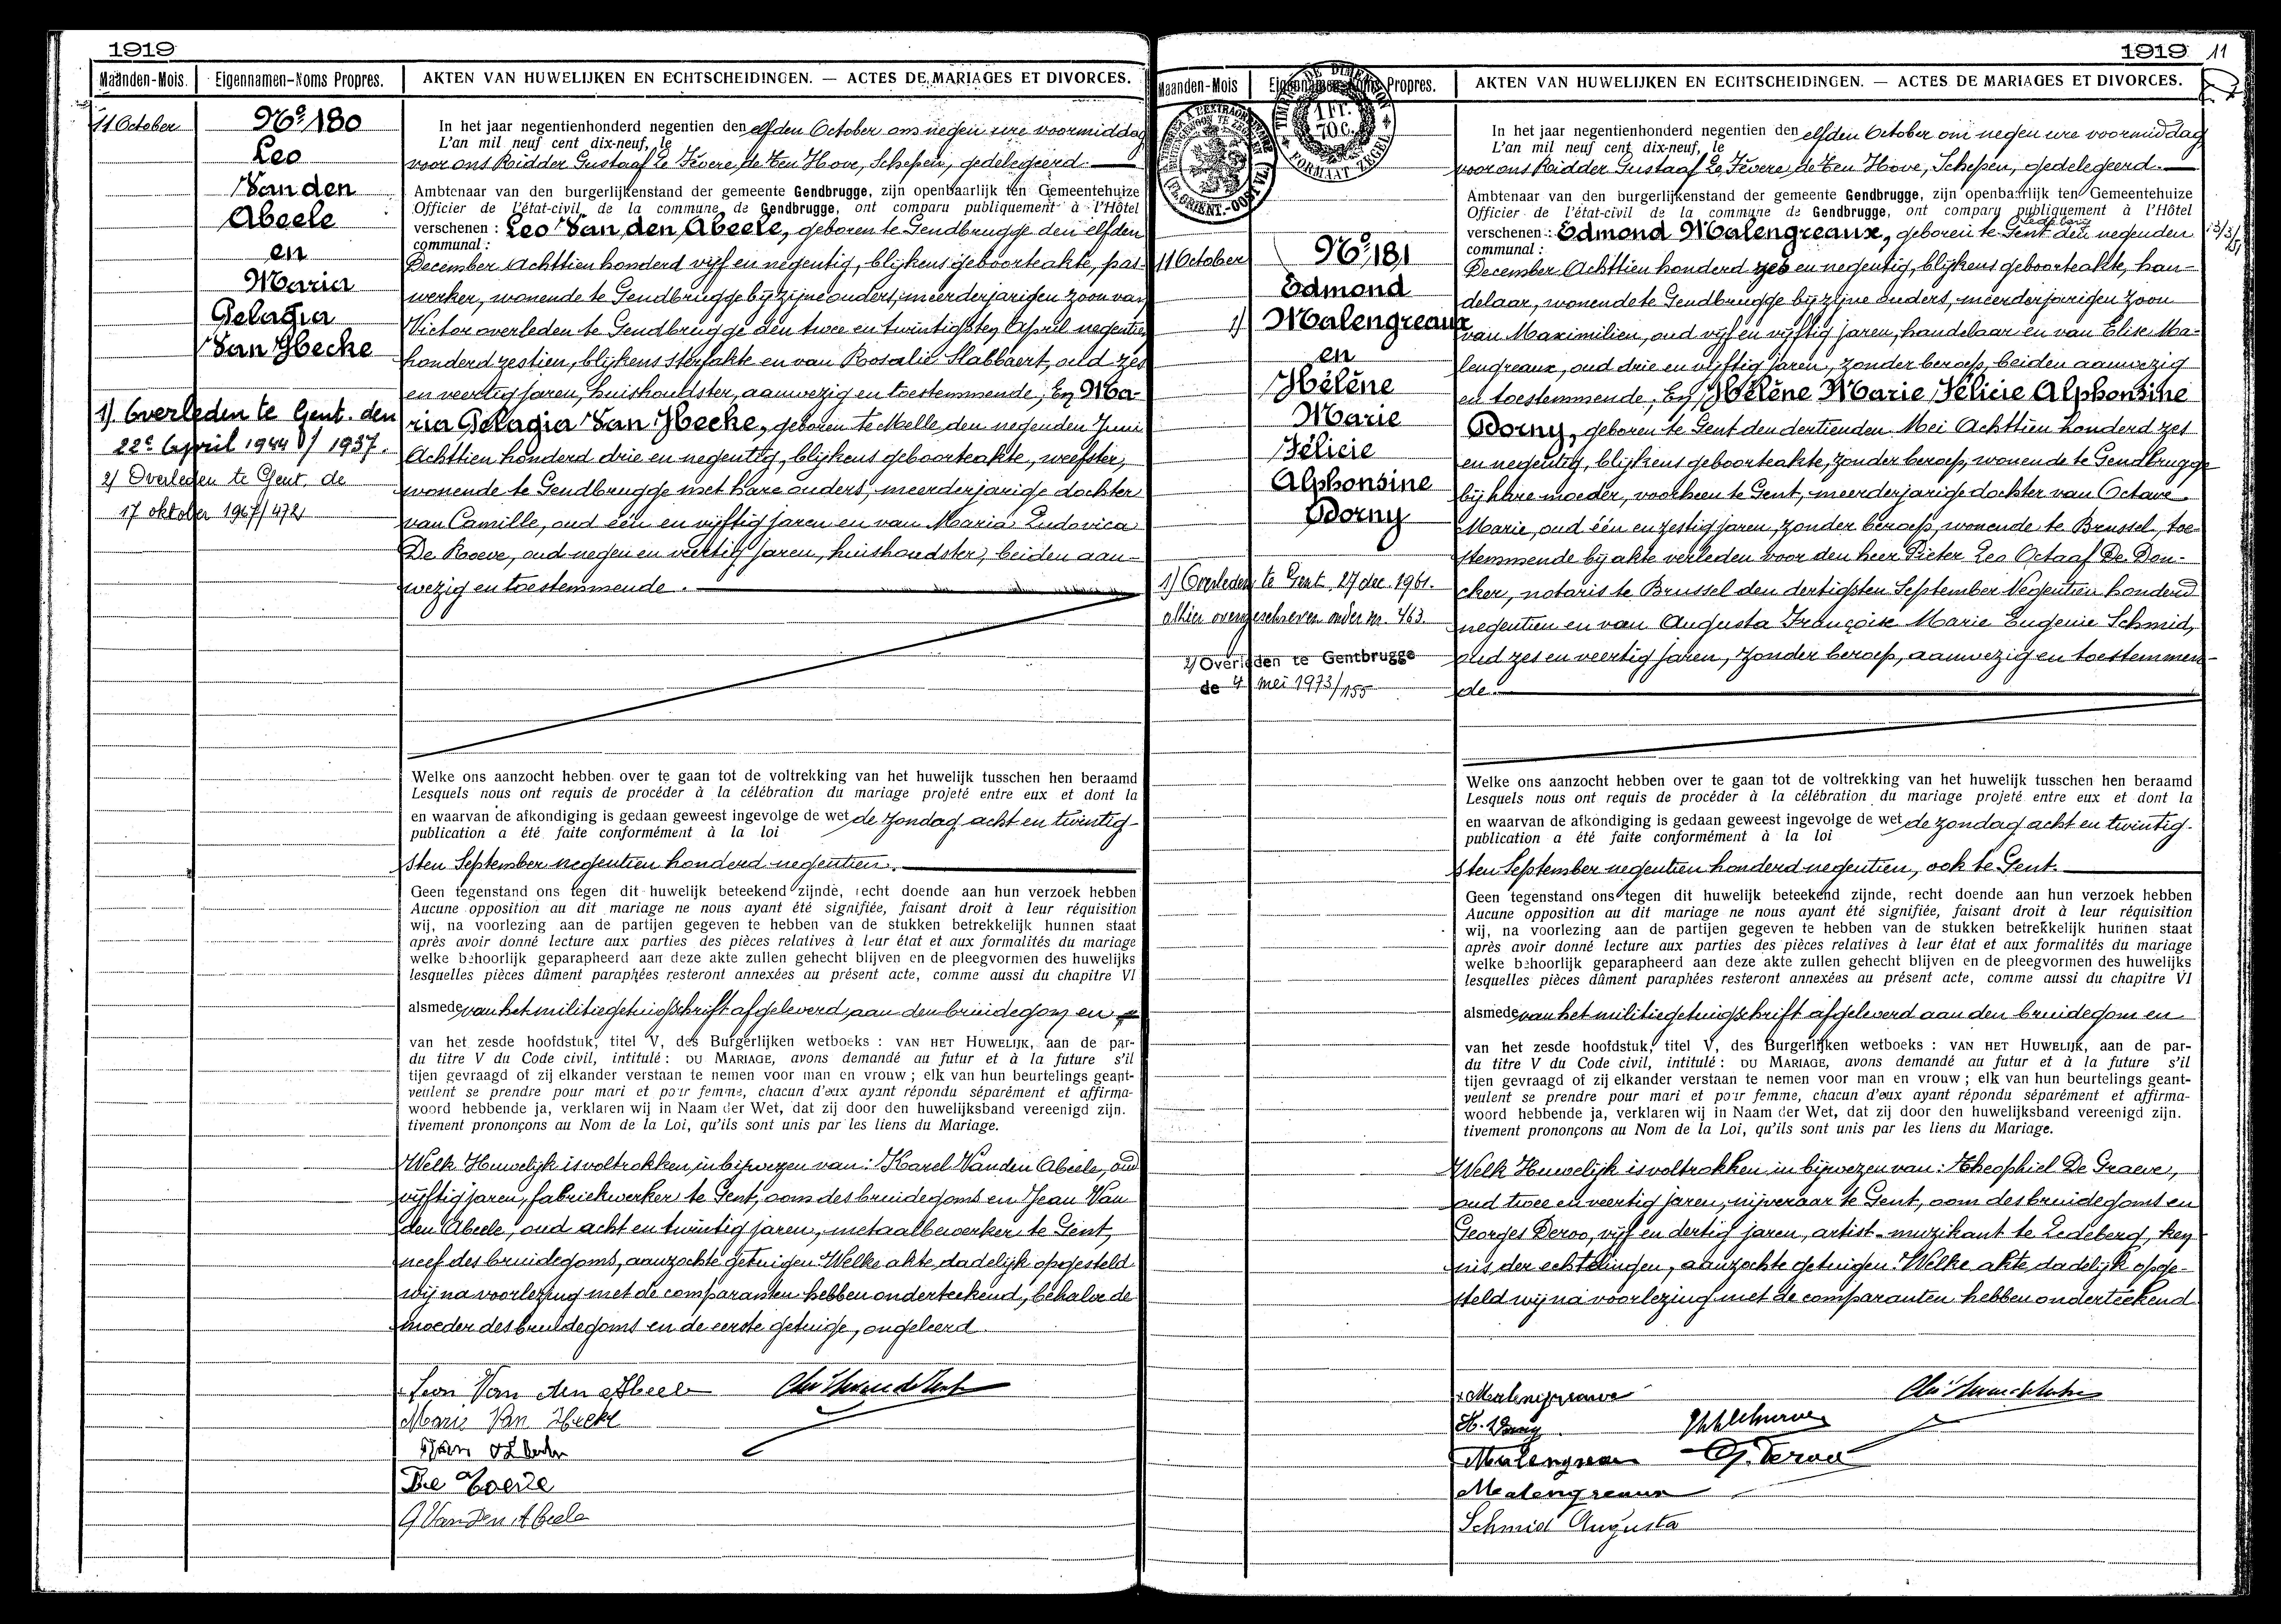 1919
Maanden-Mois.
Eigennamen-Noms Propres.
AKTEN VAN HUWELIJKEN EN ECHTSCHEIDINGEN. — ACTES DE MARIAGES ET DIVORCES.
11 October
No 180
Leo
Van den
Abeele
en
Maria
Pelagia
Van Hecke
1). Overleden te Gent. den
22e April 1944 / 1937.
2) Overleden te Gent, de
17 oktober 1967/472
In het jaar negentienhonderd negentien den elfden October om negen ure voormiddag
L'an mil neuf cent dix-neuf, le
voor ons Ridder Gustaaf Le Fèvere de Ten Hove, Schepen, gedelegeerd.
Ambtenaar van den burgerlijkenstand der gemeente Gendbrugge, zijn openbaarlijk ten Gemeentehuize
Officier de l'état-civil de la commune de Gendbrugge, ont comparu publiquement à l'Hôtel
verschenen : Leo Van den Abeele, geboren te Gendbrugge den elfden
communal :
December Achttien honderd vijf en negentig, blijkens geboorteakte, pas-
werker, wonende te Gendbrugge bij zijne ouders, meerderjarigen zoon van
Victor overleden te Gendbrugge den twee en twintigsten April negentien
honderd zestien, blijkens sterfakte en van Rosalie Slabbaert, oud zes
en veertig jaren, huishoudster, aanwezig en toestemmende; En Ma-
ria Pelagia Van Hecke, geboren te Melle den negenden Juni
Achttien honderd drie en negentig, blijkens geboorteakte, weefster,
wonende te Gendbrugge met hare ouders, meerderjarige dochter
van Camille, oud één en vijftig jaren en van Maria Ludovica
De Roeve, oud negen en veertig jaren, huishoudster, beiden aan-
wezig en toestemmende.
Welke ons aanzocht hebben over te gaan tot de voltrekking van het huwelijk tusschen hen beraamd
Lesquels nous ont requis de procéder à la célébration du mariage projeté entre eux et dont la
en waarvan de afkondiging is gedaan geweest ingevolge de wet de zondag acht en twintig-
publication a été faite conformément à la loi
sten September negentien honderd negentien.
Geen tegenstand ons tegen dit huwelijk beteekend zijnde, recht doende aan hun verzoek hebben
Aucune opposition au dit mariage ne nous ayant été signifiée, faisant droit à leur réquisition
wij, na voorlezing aan de partijen gegeven te hebben van de stukken betrekkelijk hunnen staat
après avoir donné lecture aux parties des pièces relatives à leur état et aux formalités du mariage
welke behoorlijk geparapheerd aan deze akte zullen gehecht blijven en de pleegvormen des huwelijks
lesquelles pièces dûment paraphées resteront annexées au présent acte, comme aussi du chapitre VI
alsmede van het militiegetuigschrift afgeleverd aan den bruidegom en
van het zesde hoofdstuk, titel V, des Burgerlijken wetboeks : VAN HET HUWELIJK, aan de par-
du titre V du Code civil, intitulé : DU MARIAGE, avons demandé au futur et à la future s'il
tijen gevraagd of zij elkander verstaan te nemen voor man en vrouw ; elk van hun beurtelings geant-
veulent se prendre pour mari et pour femme, chacun d'eux ayant répondu séparément et affirma-
woord hebbende ja, verklaren wij in Naam der Wet, dat zij door den huwelijksband vereenigd zijn.
tivement prononçons au Nom de la Loi, qu'ils sont unis par les liens du Mariage.
Welk Huwelijk is voltrokken in bijwezen van: Karel Van den Abeele, oud
vijftig jaren, fabriekwerker te Gent, oom des bruidegoms en Jean Van
den Abeele, oud acht en twintig jaren, metaalbewerker te Gent,
neef des bruidegoms, aanzochte getuigen. Welke akte dadelijk opgesteld
wij na voorlezing met de comparanten hebben onderteekend, behalve de
moeder des bruidegoms en de eerste getuige, ongeleerd.
Leon Van den Abeele
Marie Van Hecke
De Roeve
J Van Den Abeele
1919 11
Maanden-Mois
Eigennamen-Noms Propres.
AKTEN VAN HUWELIJKEN EN ECHTSCHEIDINGEN. — ACTES DE MARIAGES ET DIVORCES.
TIMBRE DE DIMENSION
1 FR. 70 C.
FORMAAT ZEGEL
11 October
No 181
Edmond
1) Malengreaux
en
Hélène
Marie
Félicie
Alphonsine
Dorny
1) Overleden te Gent 27 dec. 1961.
alhier overgeschreven onder nr. 463.
2) Overleden te Gentbrugge
de 4 mei 1973/155
In het jaar negentienhonderd negentien den elfden October om negen ure voormiddag
L'an mil neuf cent dix-neuf, le
voor ons Ridder Gustaaf Le Fèvere de Ten Hove, Schepen, gedelegeerd.
Ambtenaar van den burgerlijkenstand der gemeente Gendbrugge, zijn openbaarlijk ten Gemeentehuize
Officier de l'état-civil de la commune de Gendbrugge, ont comparu publiquement à l'Hôtel
Ledeberg
verschenen : Edmond Malengreaux, geboren te Gent den negenden
communal :
December Achttien honderd zes en negentig, blijkens geboorteakte, han-
delaar, wonende te Gendbrugge bij zijne ouders, meerderjarigen zoon
van Maximilien, oud vijf en vijftig jaren, handelaar en van Elise Ma-
lengreaux, oud drie en vijftig jaren, zonder beroep, beiden aanwezig
en toestemmende; En Hélène Marie Félicie Alphonsine
Dorny, geboren te Gent den dertienden Mei Achttien honderd zes
en negentig, blijkens geboorteakte, zonder beroep, wonende te Gendbrugge
bij hare moeder, voorheen te Gent, meerderjarige dochter van Octave
Marie, oud één en zestig jaren, zonder beroep, wonende te Brussel, toe-
stemmende bij akte verleden voor den heer Pieter Leo Octaaf De Don-
cker, notaris te Brussel den dertigsten September Negentien honderd
negentien en van Augusta Françoise Marie Eugenie Schmid,
oud zes en veertig jaren, zonder beroep, aanwezig en toestemmen-
de.
Welke ons aanzocht hebben over te gaan tot de voltrekking van het huwelijk tusschen hen beraamd
Lesquels nous ont requis de procéder à la célébration du mariage projeté entre eux et dont la
en waarvan de afkondiging is gedaan geweest ingevolge de wet de zondag acht en twintig-
publication a été faite conformément à la loi
sten September negentien honderd negentien, ook te Gent.
Geen tegenstand ons tegen dit huwelijk beteekend zijnde, recht doende aan hun verzoek hebben
Aucune opposition au dit mariage ne nous ayant été signifiée, faisant droit à leur réquisition
wij, na voorlezing aan de partijen gegeven te hebben van de stukken betrekkelijk hunnen staat
après avoir donné lecture aux parties des pièces relatives à leur état et aux formalités du mariage
welke behoorlijk geparapheerd aan deze akte zullen gehecht blijven en de pleegvormen des huwelijks
lesquelles pièces dûment paraphées resteront annexées au présent acte, comme aussi du chapitre VI
alsmede van het militiegetuigschrift afgeleverd aan den bruidegom en
van het zesde hoofdstuk, titel V, des Burgerlijken wetboeks : VAN HET HUWELIJK, aan de par-
du titre V du Code civil, intitulé : DU MARIAGE, avons demandé au futur et à la future s'il
tijen gevraagd of zij elkander verstaan te nemen voor man en vrouw ; elk van hun beurtelings geant-
veulent se prendre pour mari et pour femme, chacun d'eux ayant répondu séparément et affirma-
woord hebbende ja, verklaren wij in Naam der Wet, dat zij door den huwelijksband vereenigd zijn.
tivement prononçons au Nom de la Loi, qu'ils sont unis par les liens du Mariage.
Welk Huwelijk is voltrokken in bijwezen van: Theophiel De Graeve,
oud twee en veertig jaren, nijveraar te Gent, oom des bruidegoms en
Georges Deroo, vijf en dertig jaren, artist-muzikant te Ledeberg, ken-
nis der echtelingen, aanzochte getuigen. Welke akte dadelijk opge-
steld wij na voorlezing met de comparanten hebben onderteekend
Malengreaux
H. Dorny
Malengreau
G. Deroo
Malengreaux
Schmid Augusta